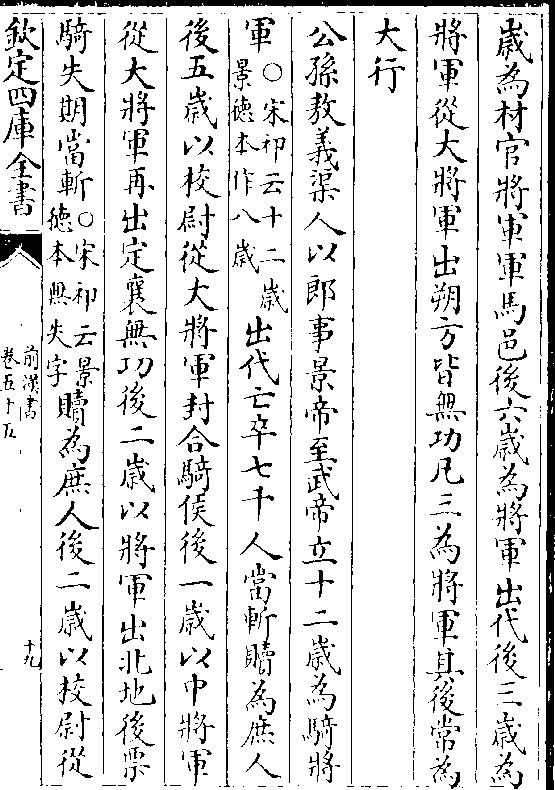 歳為材官將軍軍馬邑後六歳為將軍出代後三歳為
將軍從大將軍出朔方皆無功凡三為將軍其後常為
大行
公孫敖義渠人以郎事景帝至武帝立十二歳為騎將
軍○宋祁云十二歳
景德本作八歳
出代亡卒七千人當斬贖為庶人
後五歳以校尉從大將軍封合騎侯後一歳以中將軍
從大將軍再出定襄無功後二歳以將軍出北地後票
騎失期當斬○宋祁云景
德本無失字
贖為庶人後二歳以校尉從
欽定四庫全書
前漢書
卷五十五
十九